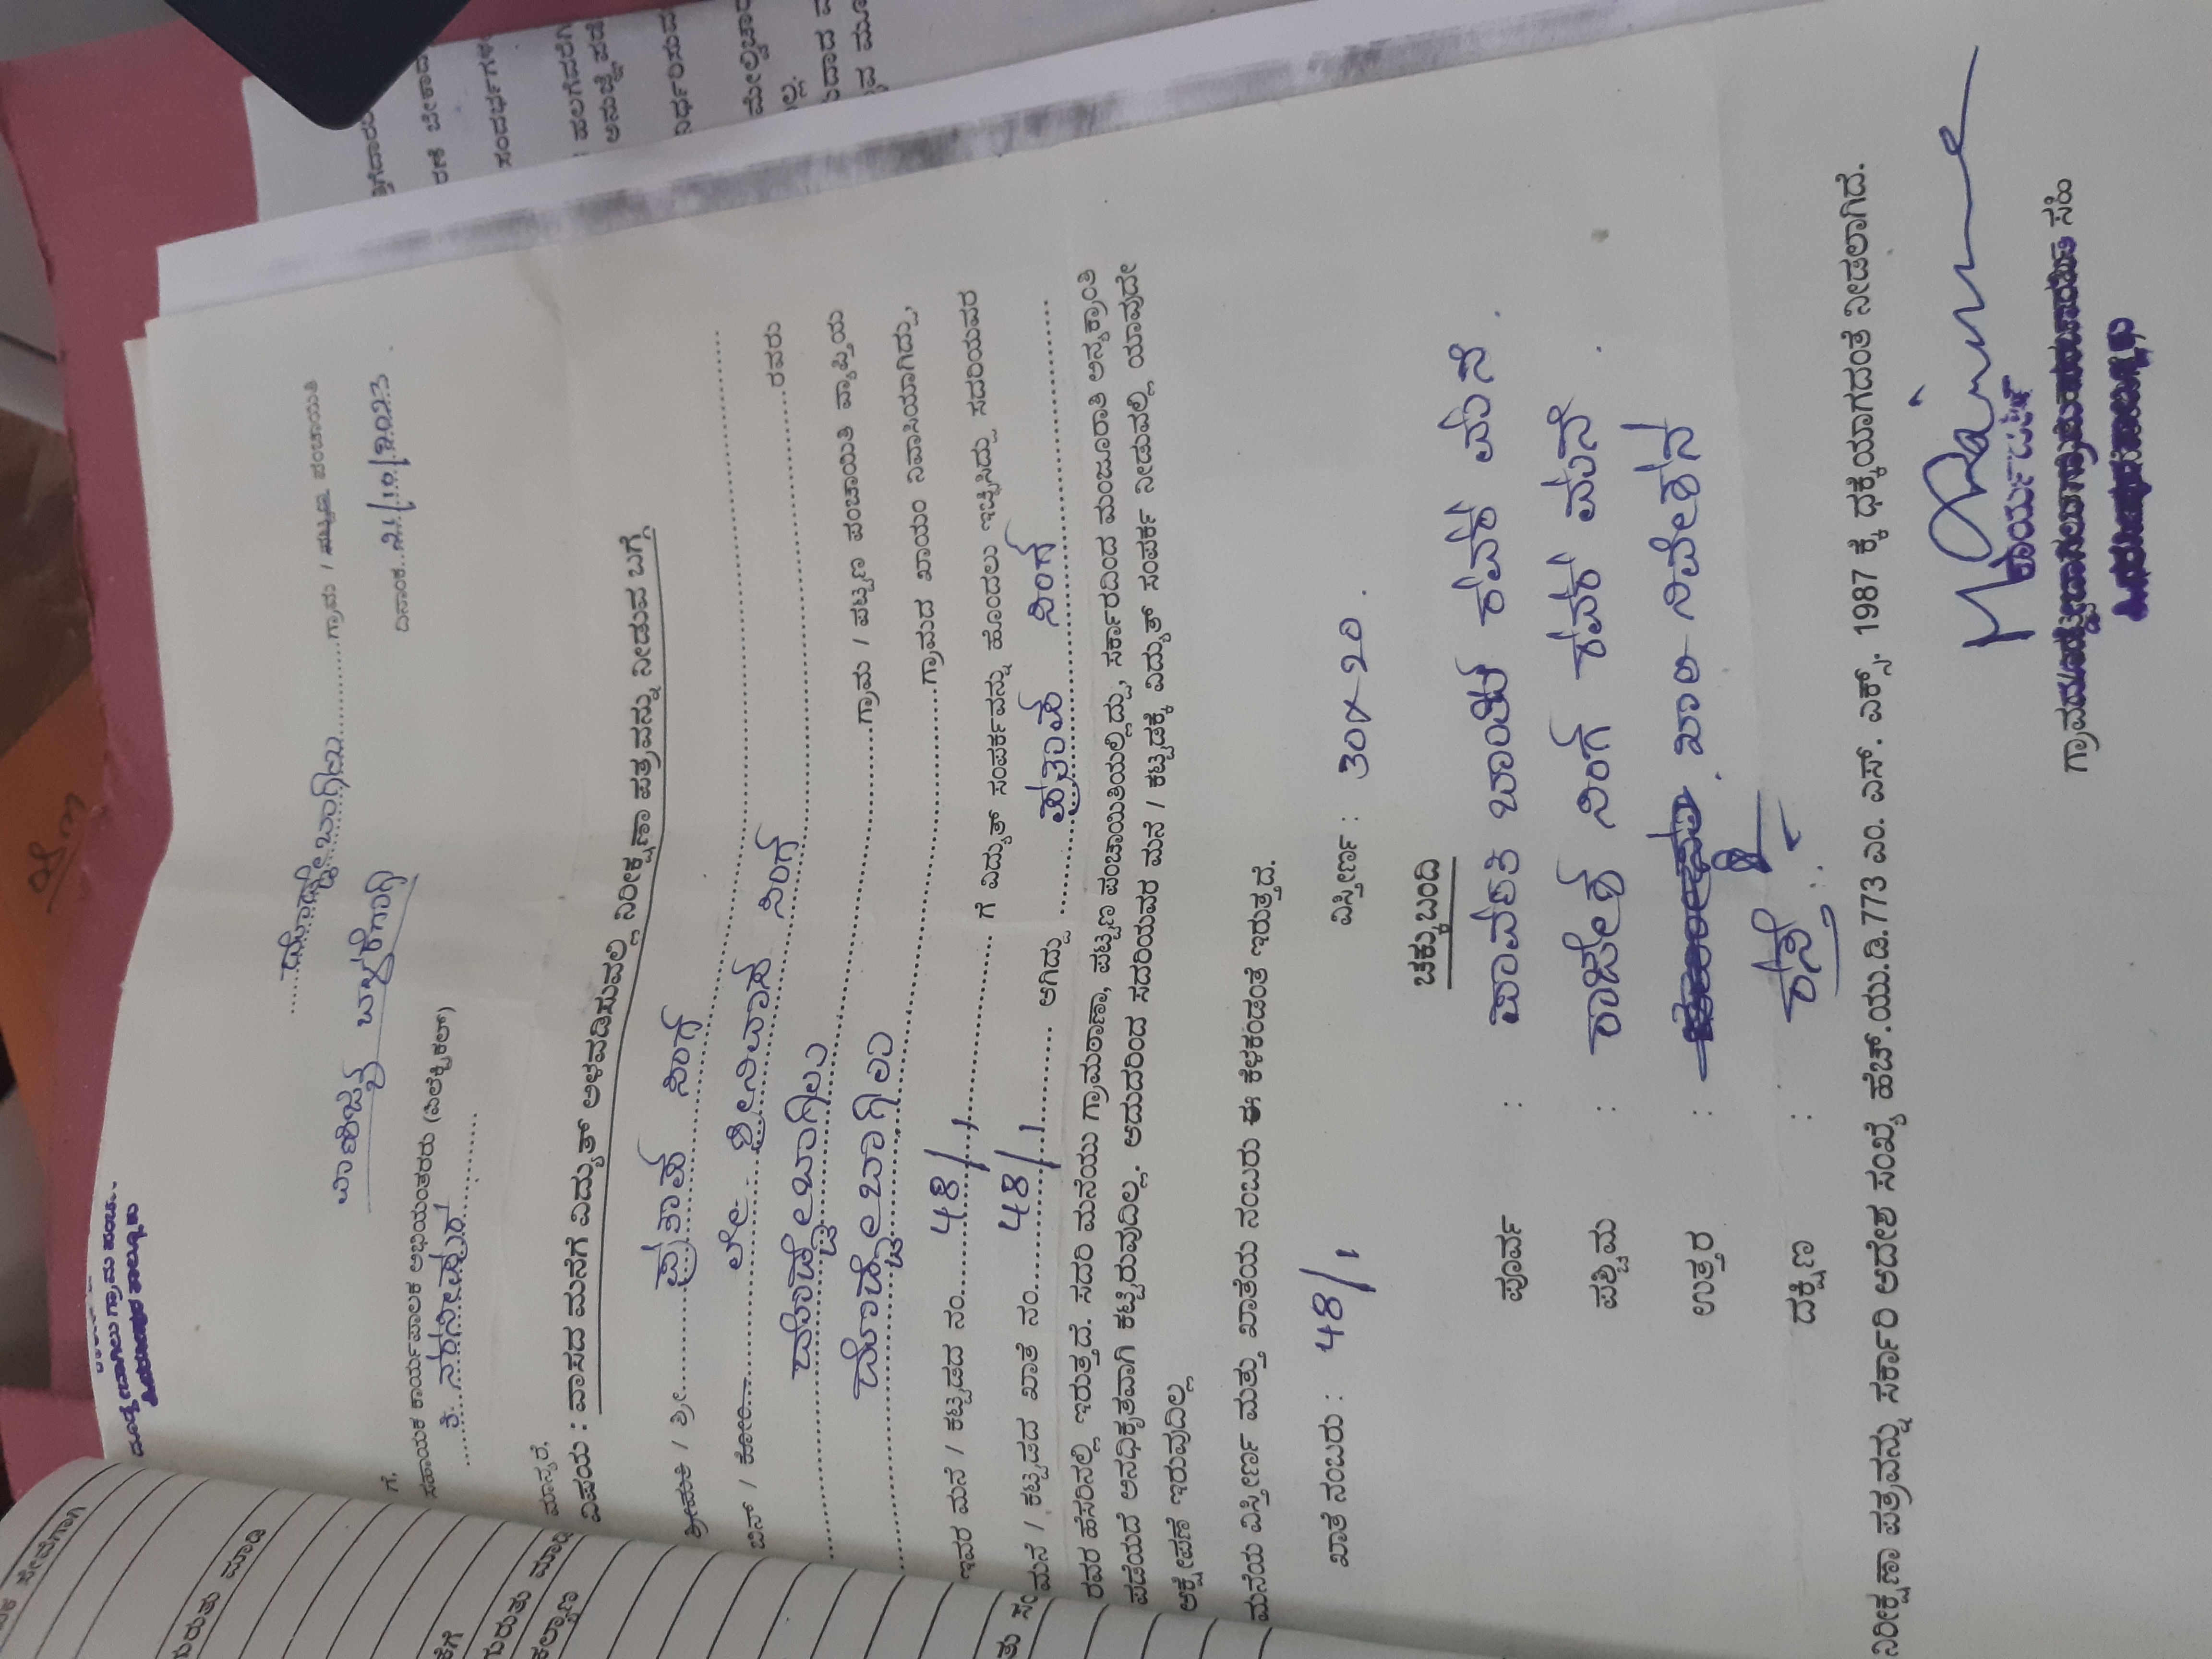 ದೊಡ್ಡೇಬಾಗಿಲು ಗ್ರಾಮ ಪಂಚಾ
ದೊಡ್ಡೇಬಾಗಿಲು ಗ್ರಾಮ / ಪಟ್ಟಣ ಪಂಚಾಯಿತಿ
ವಾಣಿಜ್ಯ ಬಳಕೆಗಾಗಿ
ದಿನಾಂಕ 21/10/2023
ಗೆ,
ಸಹಾಯಕ ಕಾರ್ಯಪಾಲಕ ಅಭಿಯಂತರರು (ಎಲೆಕ್ಟ್ರಿಕಲ್)
ತಿ ನರಸೀಪುರ
ಮಾನ್ಯರೆ,
ವಿಷಯ : ವಾಸದ ಮನೆಗೆ ವಿದ್ಯುತ್ ಅಳವಡಿಸುವಲ್ಲಿ ನಿರೀಕ್ಷಣಾ ಪತ್ರವನ್ನು ನೀಡುವ ಬಗ್ಗೆ
ಶ್ರೀಮತಿ / ಶ್ರೀ ಪ್ರತಾಪ ಸಿಂಗ್
ಬಿನ್ / ಕೋಂ ಲೇ ಶ್ರೀನಿವಾಸ ಸಿಂಗ್ ರವರು
ದೊಡ್ಡೇಬಾಗಿಲು ಗ್ರಾಮ / ಪಟ್ಟಣ ಪಂಚಾಯಿತಿ ವ್ಯಾಪ್ತಿಯ
ದೊಡ್ಡೇಬಾಗಿಲು ಗ್ರಾಮದ ಖಾಯಂ ನಿವಾಸಿಯಾಗಿದ್ದು,
ಇವರ ಮನೆ / ಕಟ್ಟಡದ ನಂ. 48/1 ಗೆ ವಿದ್ಯುತ್ ಸಂಪರ್ಕವನ್ನು ಹೊಂದಲು ಇಚ್ಛಿಸಿದ್ದು ಸದರಿಯವರ
ಮನೆ / ಕಟ್ಟಡದ ಖಾತೆ ನಂ. 48/1 ಆಗಿದ್ದು ಪ್ರತಾಪ ಸಿಂಗ್
ರವರ ಹೆಸರಿನಲ್ಲಿ ಇರುತ್ತದೆ. ಸದರಿ ಮನೆಯು ಗ್ರಾಮಠಾಣಾ, ಪಟ್ಟಣ ಪಂಚಾಯಿತಿಯಲ್ಲಿದ್ದು, ಸರ್ಕಾರದಿಂದ ಮಂಜೂರಾತಿ ಅನ್ಯಕ್ರಾಂತಿ
ಪಡೆಯದೆ ಅನಧಿಕೃತವಾಗಿ ಕಟ್ಟಿರುವುದಿಲ್ಲ. ಆದುದರಿಂದ ಸದರಿಯವರ ಮನೆ / ಕಟ್ಟಡಕ್ಕೆ ವಿದ್ಯುತ್ ಸಂಪರ್ಕ ನೀಡುವಲ್ಲಿ ಯಾವುದೇ
ಆಕ್ಷೇಪಣೆ ಇರುವುದಿಲ್ಲ
ಮನೆಯ ವಿಸ್ತೀರ್ಣ ಮತ್ತು ಖಾತೆಯ ನಂಬರು ಈ ಕೆಳಕಂಡಂತೆ ಇರುತ್ತದೆ.
ಖಾತೆ ನಂಬರು : 48/1 ವಿಸ್ತೀರ್ಣ : 30x20.
ಚಕ್ಕುಬಂದಿ
ಪೂರ್ವ : ಪಾರ್ವತಿ ಬಾಯಿ ರವರ ಮನೆ.
ಪಶ್ಚಿಮ : ರಾಜೇಶ ಸಿಂಗ್ ರವರ ಮನೆ.
ಉತ್ತರ : ಖಾಲಿ ನಿವೇಶನ
ದಕ್ಷಿಣ : ರಸ್ತೆ
ನಿರೀಕ್ಷಣಾ ಪತ್ರವನ್ನು ಸರ್ಕಾರಿ ಆದೇಶ ಸಂಖ್ಯೆ ಹೆಚ್.ಯು.ಡಿ.773 ಎಂ. ಎನ್. ಎಕ್ಸ್. 1987 ಕ್ಕೆ ಧಕ್ಕೆಯಾಗದಂತೆ ನೀಡಲಾಗಿದೆ.
ಗ್ರಾಮ ಸಹಿ